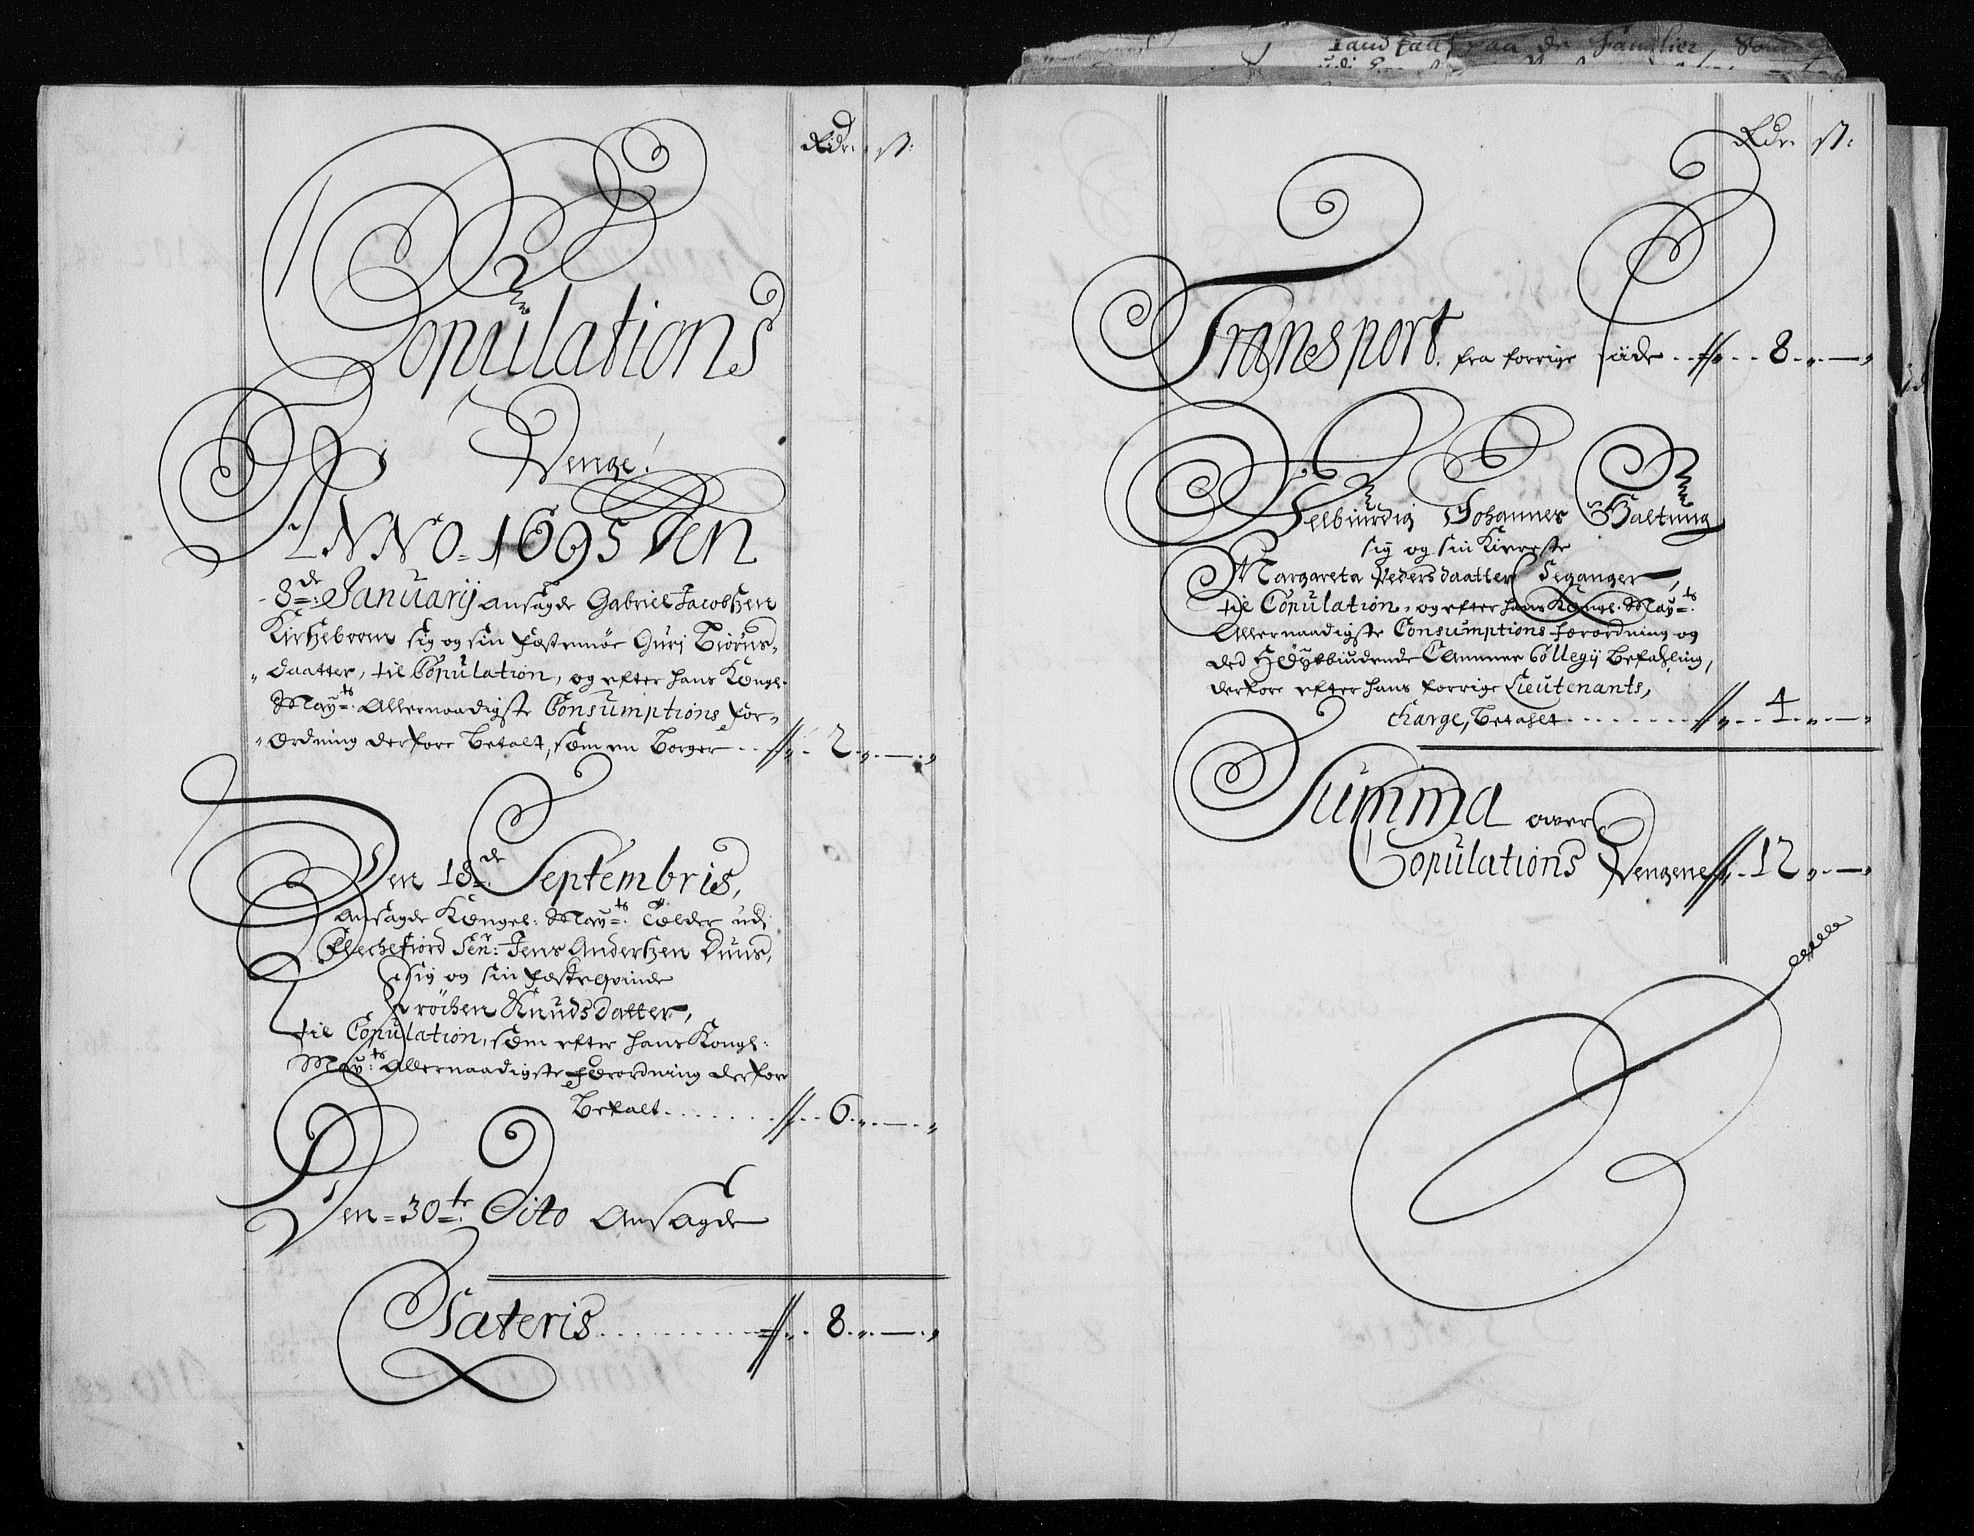 Rdr. ß:
Copulations
Penge!
ANNO 1695 Den
8de: Januarij ansagde Gabriel Jacobsen
Kirkeboem sig og sin Festemøe Guri Biørns-
daatter, til Copulation, og efter hans Kongl:
Mayts: Allernaadigste Consumptions For-
ordning derfore Betalt, som en Borger - - 2 „ — „
Den 18de: Septembris,
Ansagde Kongel: Mayts: Tolder udj
Flechefiord Sen: Jens Andersen Duus,
sig og sin Festequinde
Tröichen Knudsdatter,
til Copulation, som efter hans Kongl:
Mayts: Allernaadigste Forordning derfore
Betalt . . . . . . . 6 „ — „
Den 30te: Dito Ansagde
Lateris . . . . . . . . 8 „ — „
Rdr. ß:
Transport fra forrige side . . 8 „ — „
Velbiurdig Johannes Haltung
sig og sin Kiereste
Margareta Pedersdaatter Teganger,
til Copulation, og efter hans Kongl. Mayts:
Allernaadigste Consumptions forordning og
ded Høytbiudende Cammer Collegij Befahling,
derfore efter hans forrige Lieutenants,
Charge, Betahlt . . . . . . . 4 „ — „
Summa over
Copulations Pengene 12 „ — „